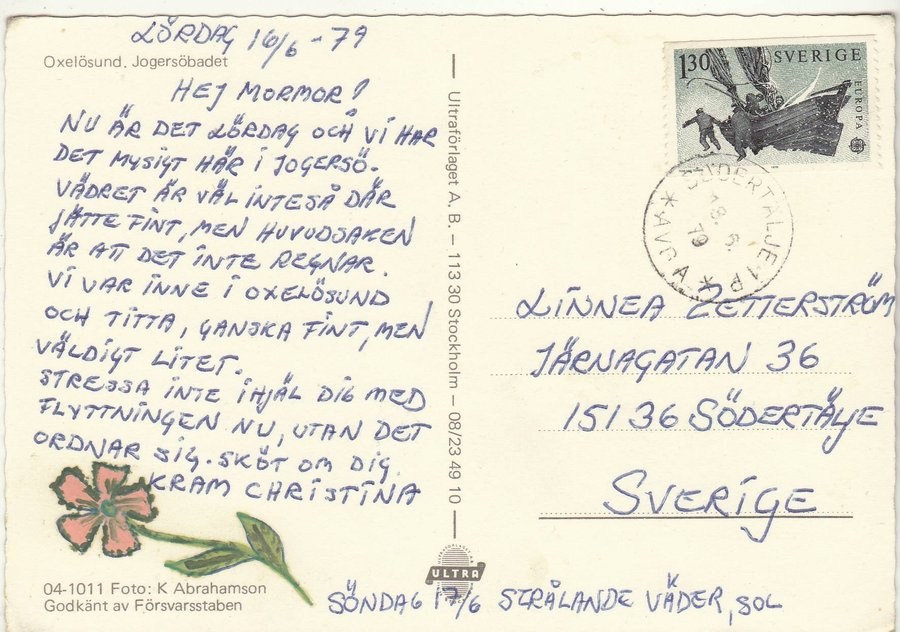 LÖRDAG 16/6 - 79
Oxelösund. Jogersöbadet
HEJ MORMOR!
NU ÄR DET LÖRDAG OCH VI HAR
DET MYSIGT HÄR I JOGERSÖ.
VÄDRET ÄR VÄL INTE SÅ DÄR
JÄTTE FINT, MEN HUVUDSAKEN
ÄR ATT DET INTE REGNAR.
VI VAR INNE I OXELÖSUND
OCH TITTA, GANSKA FINT, MEN
VÄLDIGT LITET.
STRESSA INTE IHJÄL DIG MED
FLYTTNINGEN NU, UTAN DET
ORDNAR SIG. SKÖT OM DIG.
KRAM CHRISTINA
04-1011 Foto: K Abrahamson
Godkänt av Försvarsstaben
SÖNDAG 17/6 STRÅLANDE VÄDER, SOL
Ultraförlaget A. B. – 113 30 Stockholm – 08/23 49 10
ULTRA
1.30 SVERIGE
EUROPA
SÖDERTÄLJE 1 P
* AVG A *
18. 6.
79
LINNEA ZETTERSTRÖM
JÄRNAGATAN 36
151 36 SÖDERTÄLJE
SVERIGE